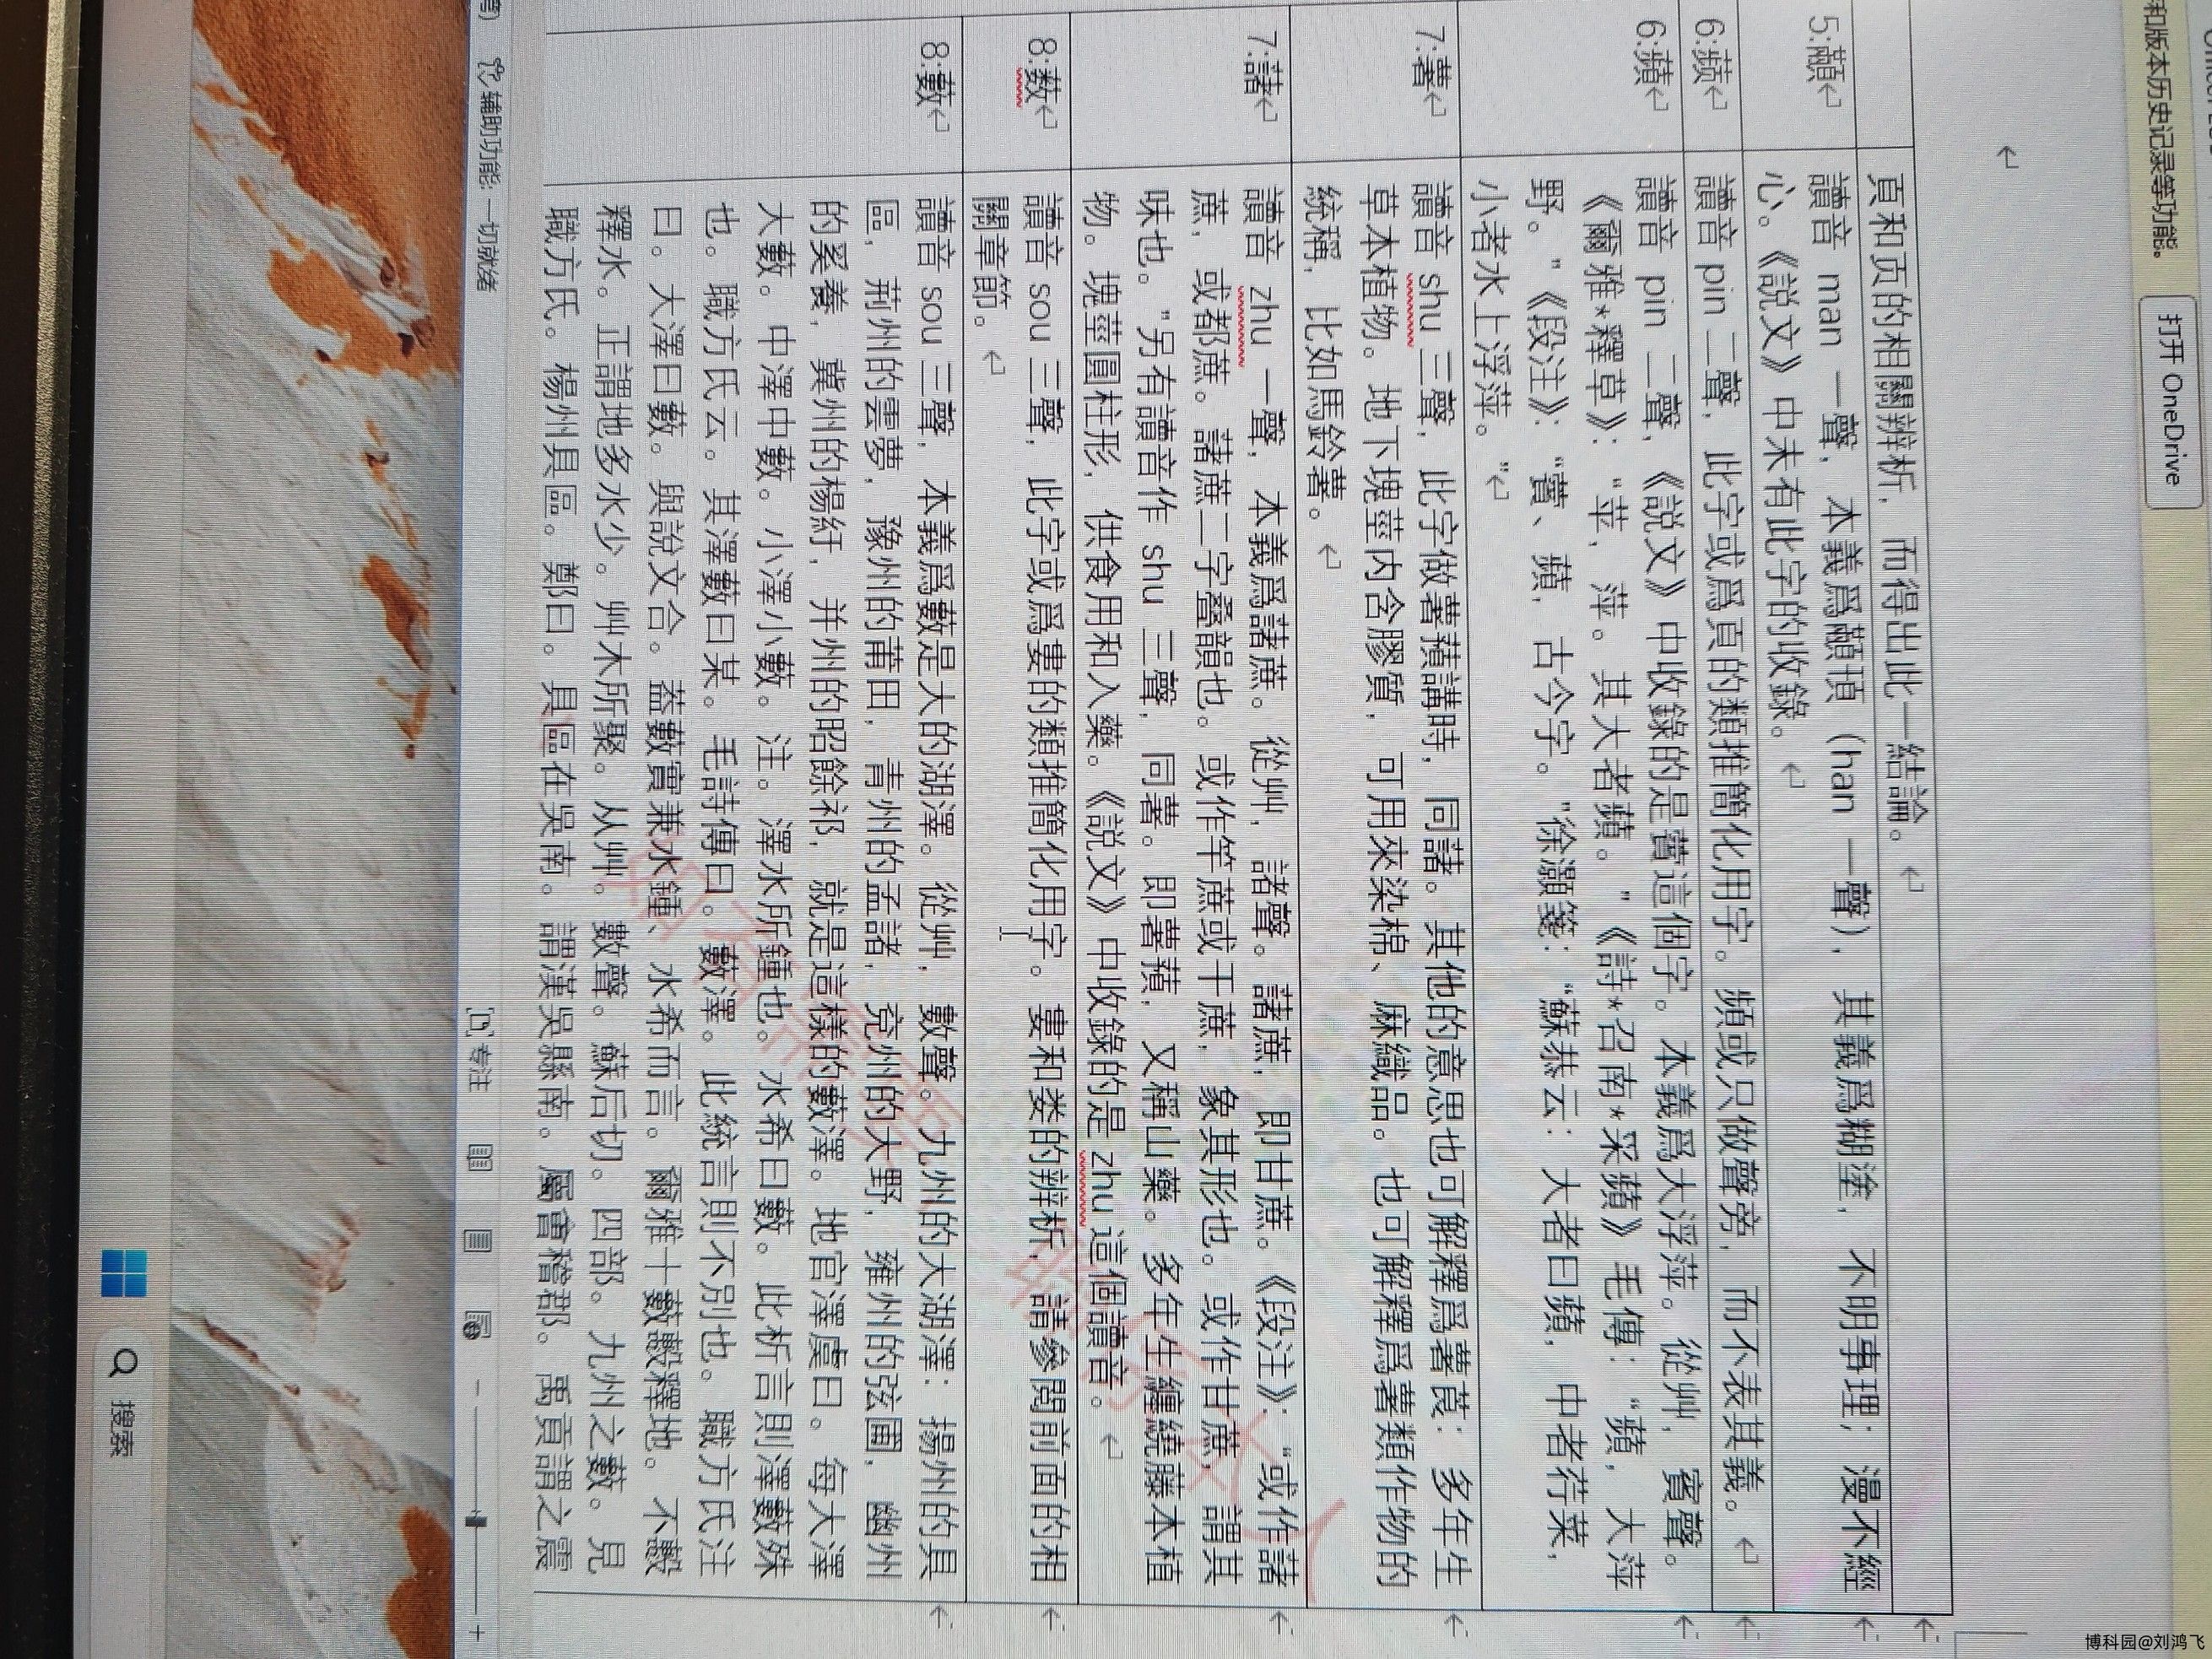 和版本历史记录等功能。 打开 OneDrive
頁和页的相關辨析，而得出此一結論。
5:顢
讀音 man 一聲，本義爲顢頇（han 一聲），其義爲糊塗，不明事理；漫不經
心。《說文》中未有此字的收錄。
6:蘋
讀音 pin 二聲，此字或爲頁的類推簡化用字。頻或只做聲旁，而不表其義。
6:蘋
讀音 pin 二聲，《說文》中收錄的是薲這個字。本義爲大浮萍。從艸，賓聲。
《爾雅*釋草》：“苹，萍。其大者蘋。”《詩*召南*采蘋》毛傳：“蘋，大萍
野。”《段注》：“薲、蘋，古今字。”徐灝箋：“蘇恭云：大者曰蘋，中者荇菜，
小者水上浮萍。”
7:薯
讀音 shu 三聲，此字做薯蕷講時，同藷。其他的意思也可解釋爲薯莨：多年生
草本植物。地下塊莖内含膠質，可用來染棉、麻織品。也可解釋爲薯類作物的
統稱，比如馬鈴薯。
7:藷
讀音 zhu 一聲，本義爲藷蔗。從艸，諸聲。藷蔗，即甘蔗。《段注》：“或作諸
蔗，或都蔗。藷蔗二字叠韻也。或作竿蔗或干蔗，象其形也。或作甘蔗，謂其
味也。”另有讀音作 shu 三聲，同薯。即薯蕷，又稱山藥。多年生纏繞藤本植
物。塊莖圓柱形，供食用和入藥。《說文》中收錄的是 zhu 這個讀音。
讀音 sou 三聲，此字或爲婁的類推簡化用字。婁和娄的辨析，請參閱前面的相
關章節。
8:藪
讀音 sou 三聲，本義爲藪是大的湖澤。從艸，數聲。九州的大湖澤：揚州的具
區，荊州的雲夢，豫州的莆田，青州的孟諸，兗州的大野，雍州的弦圃，幽州
的奚養，冀州的楊紆，并州的昭餘祁，就是這樣的藪澤。地官澤虞曰。每大澤
大藪。中澤中藪。小澤小藪。注。澤水所鍾也。水希曰藪。此析言則澤藪殊
也。職方氏云。其澤藪曰某。毛詩傳曰。藪澤。此統言則不別也。職方氏注
曰。大澤曰藪。與說文合。蓋藪實兼水鍾、水希而言。爾雅十藪繫釋地。不繫
釋水。正謂地多水少。艸木所聚。从艸。數聲。蘇后切。四部。九州之藪。見
職方氏。楊州具區。鄭曰。具區在吳南。謂漢吳縣南。屬會稽郡。禹貢謂之震
辅助功能: 一切就绪 专注
搜索
博科园@刘鸿飞